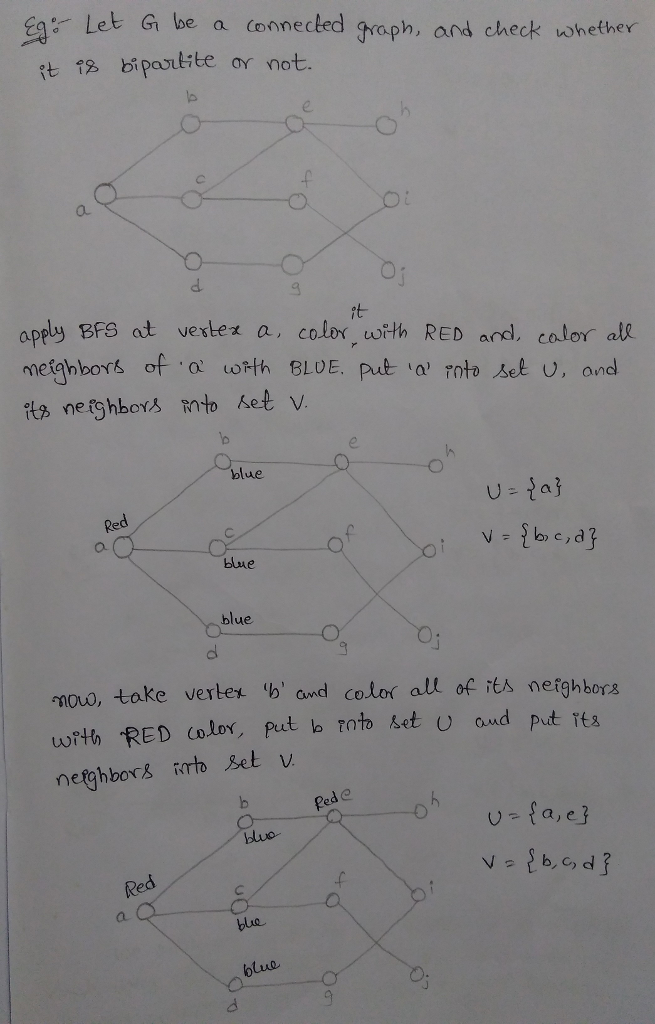 Eg:- Let G be a connected graph, and check whether
it is bipartite or not.
b e h
c f
a i
d g j
apply BFS at vertex a, color it with RED and, color all
neighbors of 'a' with BLUE. put 'a' into set U, and
its neighbors into set V.
b e h
blue
U = {a}
Red
a c f i V = {b, c, d}
blue
blue
d g j
now, take vertex 'b' and color all of its neighbors
with RED color, put b into set U and put its
neighbors into set V.
b Red e h U = {a, e}
blue
V = {b, c, d}
Red c f i
a
blue
blue
d g j